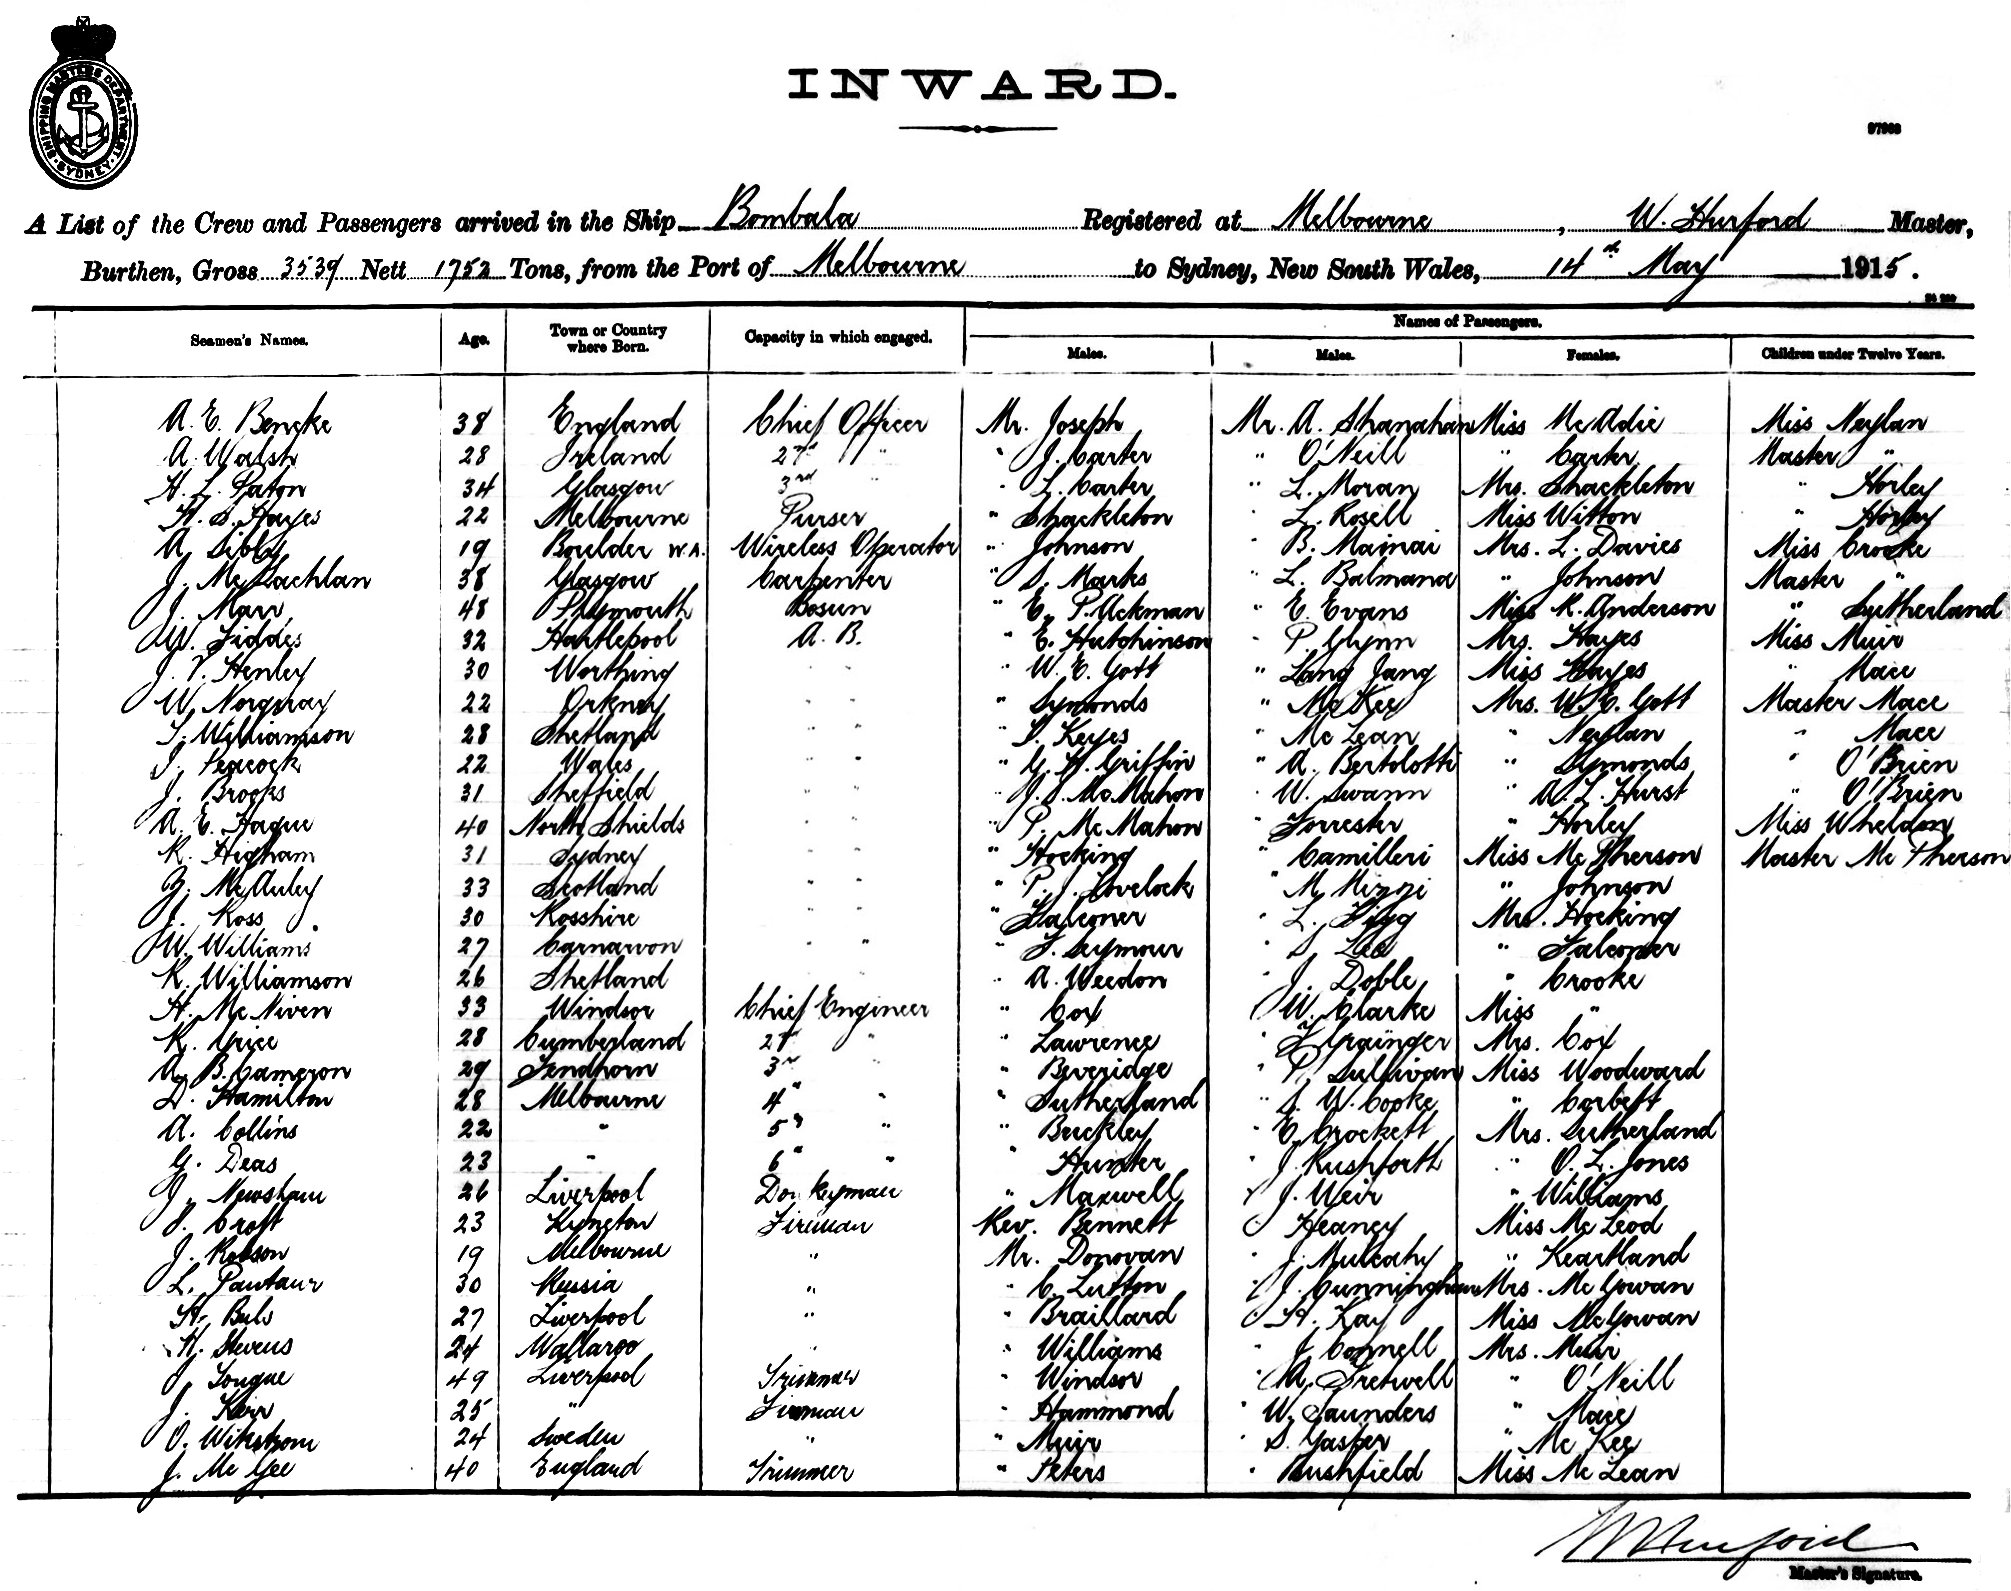 SHIPPING MASTERS DEPARTMENT. SYDNEY.
INWARD.
97963
A List of the Crew and Passengers arrived in the Ship Bombala Registered at Melbourne, W. Hurford Master,
Burthen, Gross 3539 Nett 1752 Tons, from the Port of Melbourne to Sydney, New South Wales, 14th May 1915.
Names of Passengers.
Seamen's Names. Age. Town or Country where Born. Capacity in which engaged. Males. Males. Females. Children under Twelve Years.
A. E. Bencke 38 England Chief Officer Mr. Joseph Mr. A. Shanahan Miss McAdie Miss Neylan
A. Walsh 28 Ireland 2nd " " J. Carter " O'Neill " Carter Master "
H. L. Paton 34 Glasgow 3rd " " L. Carter " L. Moran Mrs. Shackleton " Horley
H. S. Hayes 22 Melbourne Purser " Shackleton " L. Rosell Miss Witton " Horley
A. Sibly 19 Boulder W.A. Wireless Operator " Johnson " B. Mainai Mrs. L. Davies Miss Crooke
J. McLachlan 38 Glasgow Carpenter " S. Marks " L. Balmana " Johnson Master "
J. Marr 48 Plymouth Bosun " E. P. Ackman " E. Evans Miss K. Anderson " Sutherland
W. Fiddes 32 Hartlepool A. B. " E. Hutchinson " P. Glynn Mrs. Hayes Miss Muir
J. V. Henley 30 Worthing " " " W. E. Gott " Lang Jang Miss Hayes " Mace
W. Norquay 22 Orkney " " " Symonds " McKee Mrs. W. E. Gott Master Mace
T. Williamson 28 Shetland " " " S. Keyes " McLean " Neylan " Mace
J. Peacock 22 Wales " " " G. H. Griffin " A. Bertolotti " Symonds " O'Brien
J. Brooks 31 Sheffield " " " J. S. McMahon " W. Swann " A. L. Hurst " O'Brien
A. E. Hague 40 North Shields " " " P. McMahon " Forrester " Horley Miss Wheldon
R. Higham 31 Sydney " " " Hocking " Camilleri Miss McPherson Master McPherson
McAuley 33 Scotland " " " P. J. Lovelock " M. Mizzi " Johnson
J. Ross 30 Rosshire " " " Falconer " L. Mrs. Hocking
W. Williams 27 Carnarvon " " " F. Seymour " S. Lee " Falconer
R. Williamson 26 Shetland " A. Weedon " J. Doble " Crooke
H. McNiven 33 Windsor Chief Engineer " Cox " W. Clarke Miss "
R. Grice 28 Cumberland 2nd " " Lawrence " Grainger Mrs. Cox
A. B. Cameron 29 Findhorn 3rd " Beveridge " P. Sullivan Miss Woodward
D. Hamilton 28 Melbourne 4" " " Sutherland " S. W. Cooke " Corbett
A. Collins 22 " 5" " " Buckley " E. Crockett Mrs. Sutherland
G. Deas 23 " 6" " " Hunter " J. Rushforth " O. L. Jones
J. Newsham 26 Liverpool Donkeyman " Maxwell " J. Weir " Williams
S. Croft 23 Kyneton Fireman Rev. Bennett " Heaney Miss McLeod
J. Robson 19 Melbourne " Mr. Donovan " J. Mulcahy " Keartland
L. Pantaur 30 Russia " " C. Lutton " J. Cunningham Mrs. McGowan
H. Buls 27 Liverpool " " Braillard " H. Kay Miss McGowan
H. Stevens 24 Wallaroo " " Williams " J. Connell Mrs. Muir
J. Tongue 49 Liverpool Trimmer " Windsor " A. Fretwell " O'Neill
J. Kerr 25 " Fireman " Hammond " W. Saunders " Mace
O. Wikstrom 24 Sweden " " Muir " S. Gasper " McKee
J. McGee 40 England Trimmer " Peters " Bushfield Miss McLean
W Hurford
Master's Signature.